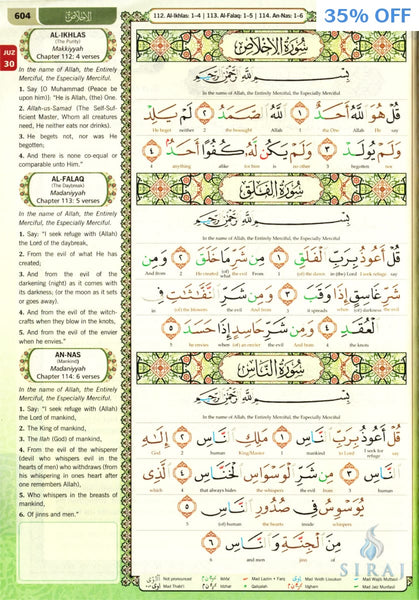 604
الإخلاص
112. Al-Ikhlas: 1-4 | 113. Al-Falaq: 1-5 | 114. An-Nas: 1-6
35% OFF
JUZ
30
AL-IKHLAS
(The Purity)
Makkiyyah
Chapter 112: 4 verses
In the name of Allah, the Entirely
Merciful, the Especially Merciful.
1. Say (O Muhammad (Peace be
upon him)): "He is Allah, (the) One.
2. Allah-us-Samad (The Self-Suf-
ficient Master, Whom all creatures
need, He neither eats nor drinks).
3. He begets not, nor was He
begotten;
4. And there is none co-equal or
comparable unto Him."
AL-FALAQ
(The Daybreak)
Madaniyyah
Chapter 113: 5 verses
In the name of Allah, the Entirely
Merciful, the Especially Merciful.
1. Say: "I seek refuge with (Allah)
the Lord of the daybreak,
2. From the evil of what He has
created;
3. And from the evil of the
darkening (night) as it comes with
its darkness; (or the moon as it sets
or goes away).
4. And from the evil of the witch-
crafts when they blow in the knots,
5. And from the evil of the envier
when he envies."
AN-NAS
(Mankind)
Madaniyyah
Chapter 114: 6 verses
In the name of Allah, the Entirely
Merciful, the Especially Merciful.
1. Say: "I seek refuge with (Allah)
the Lord of mankind,
2. The King of mankind,
3. The Ilah (God) of mankind,
4. From the evil of the whisperer
(devil who whispers evil in the
hearts of men) who withdraws (from
his whispering in ones heart after
one remembers Allah),
5. Who whispers in the breasts of
mankind,
6. Of jinns and men."
سُورَةُ الْإِخْلَاصِ
بِسْمِ اللَّهِ الرَّحْمَٰنِ الرَّحِيمِ
In the name of Allah, the Entirely Merciful, the Especially Merciful
قُلْ هُوَ اللَّهُ أَحَدٌ ١ اللَّهُ الصَّمَدُ ٢ لَمْ يَلِدْ
He begot neither the besought Allah the One Allah He Say
وَلَمْ يُولَدْ ٣ وَلَمْ يَكُن لَّهُ كُفُوًا أَحَدٌ ٤
anything alike for him is no other begotten nor
سُورَةُ الْفَلَقِ
بِسْمِ اللَّهِ الرَّحْمَٰنِ الرَّحِيمِ
In the name of Allah, the Entirely Merciful, the Especially Merciful
قُلْ أَعُوذُ بِرَبِّ الْفَلَقِ ١ مِن شَرِّ مَا خَلَقَ ٢ وَمِن
And from He created (of) what the evil From (of) the dawn in (the) Lord I seek refuge say
شَرِّ غَاسِقٍ إِذَا وَقَبَ ٣ وَمِن شَرِّ النَّفَّاثَاتِ فِي
in (of) the blowers the evil And from it spreads when (of) darkness the evil
الْعُقَدِ ٤ وَمِن شَرِّ حَاسِدٍ إِذَا حَسَدَ ٥
he envies when (of) an envier the evil And from the knots
سُورَةُ النَّاسِ
بِسْمِ اللَّهِ الرَّحْمَٰنِ الرَّحِيمِ
In the name of Allah, the Entirely Merciful, the Especially Merciful
قُلْ أَعُوذُ بِرَبِّ النَّاسِ ١ مَلِكِ النَّاسِ ٢ إِلَٰهِ
God human King/Master mankind in Lord I seek for refuge say
النَّاسِ ٣ مِن شَرِّ الْوَسْوَاسِ الْخَنَّاسِ ٤ الَّذِي
which that always hides the whispers the evil from human
يُوَسْوِسُ فِي صُدُورِ النَّاسِ ٥
(of) human the hearts inside whispers
مِنَ الْجِنَّةِ وَالنَّاسِ ٦
and men jins of
Not pronounced
Mad Thabi'i
Ikhfa'
Izhar
Mad Lazim
Qalqalah
Mad Wajib Muttasil
Mad Jaiz Munfasil
SIRAJ